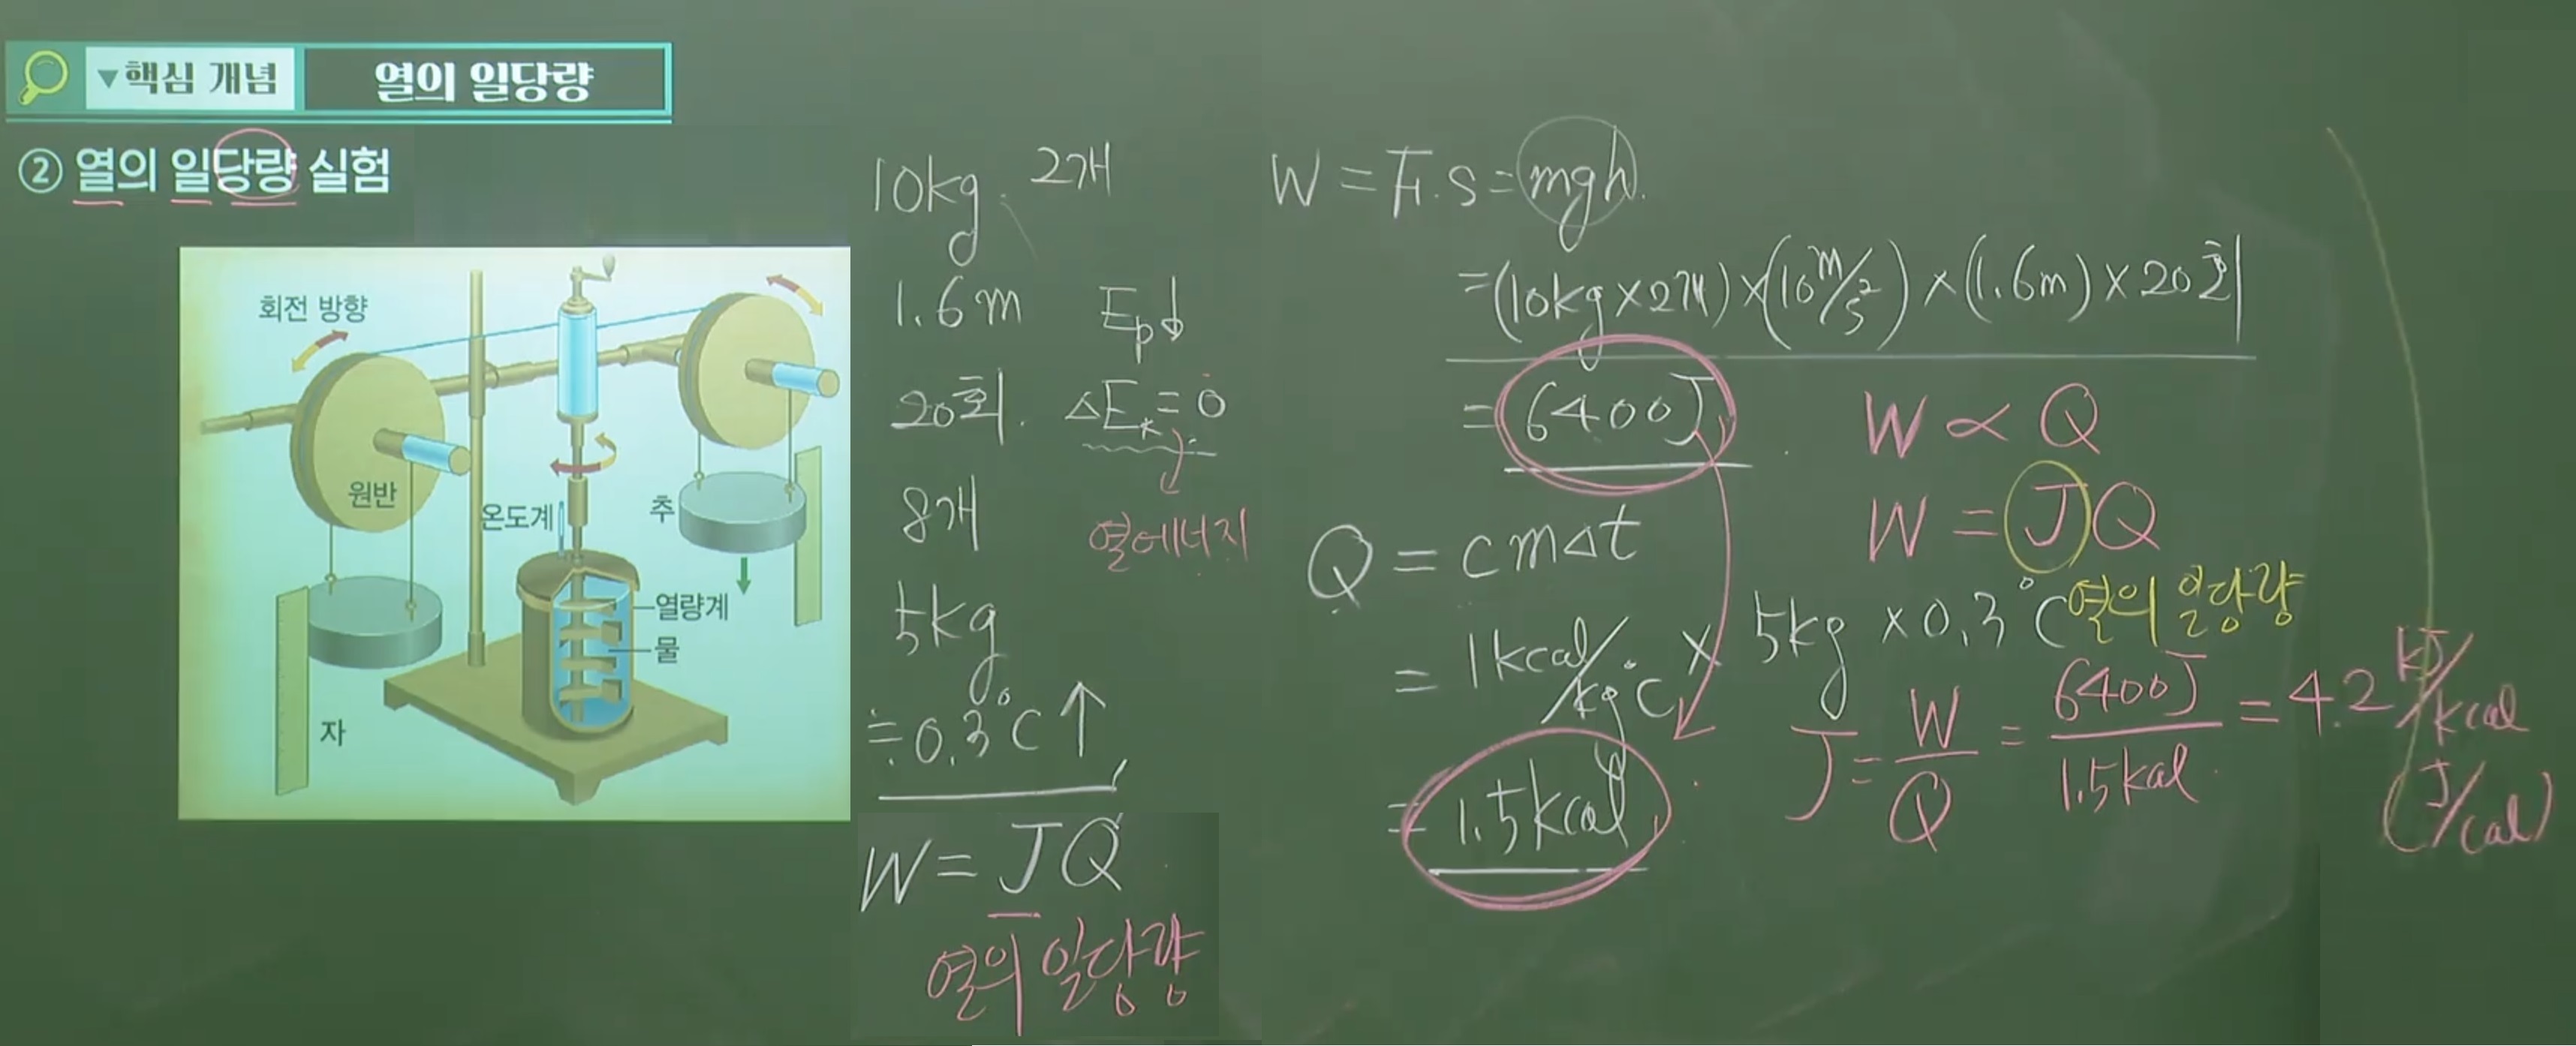 ▼핵심 개념 열의 일당량
② 열의 일당량 실험
회전 방향
원반
온도계
추
열량계
물
자
10kg. 2개
1.6m Ep↓
20회. ΔEₖ = 0
8개 열에너지
5kg
≒0.3℃↑
W = JQ
열의 일당량
W = F.S = mgh.
=(10kg×2개)×(10m/s²)×(1.6m)×20회
= 6400J
W ∝ Q
W = JQ
열의 일당량
Q = cmΔt
= 1kcal/kg℃ × 5kg × 0.3℃
= 1.5kcal
J = W/Q = 6400J/1.5kcal = 4.2 kJ/kcal
(J/cal)